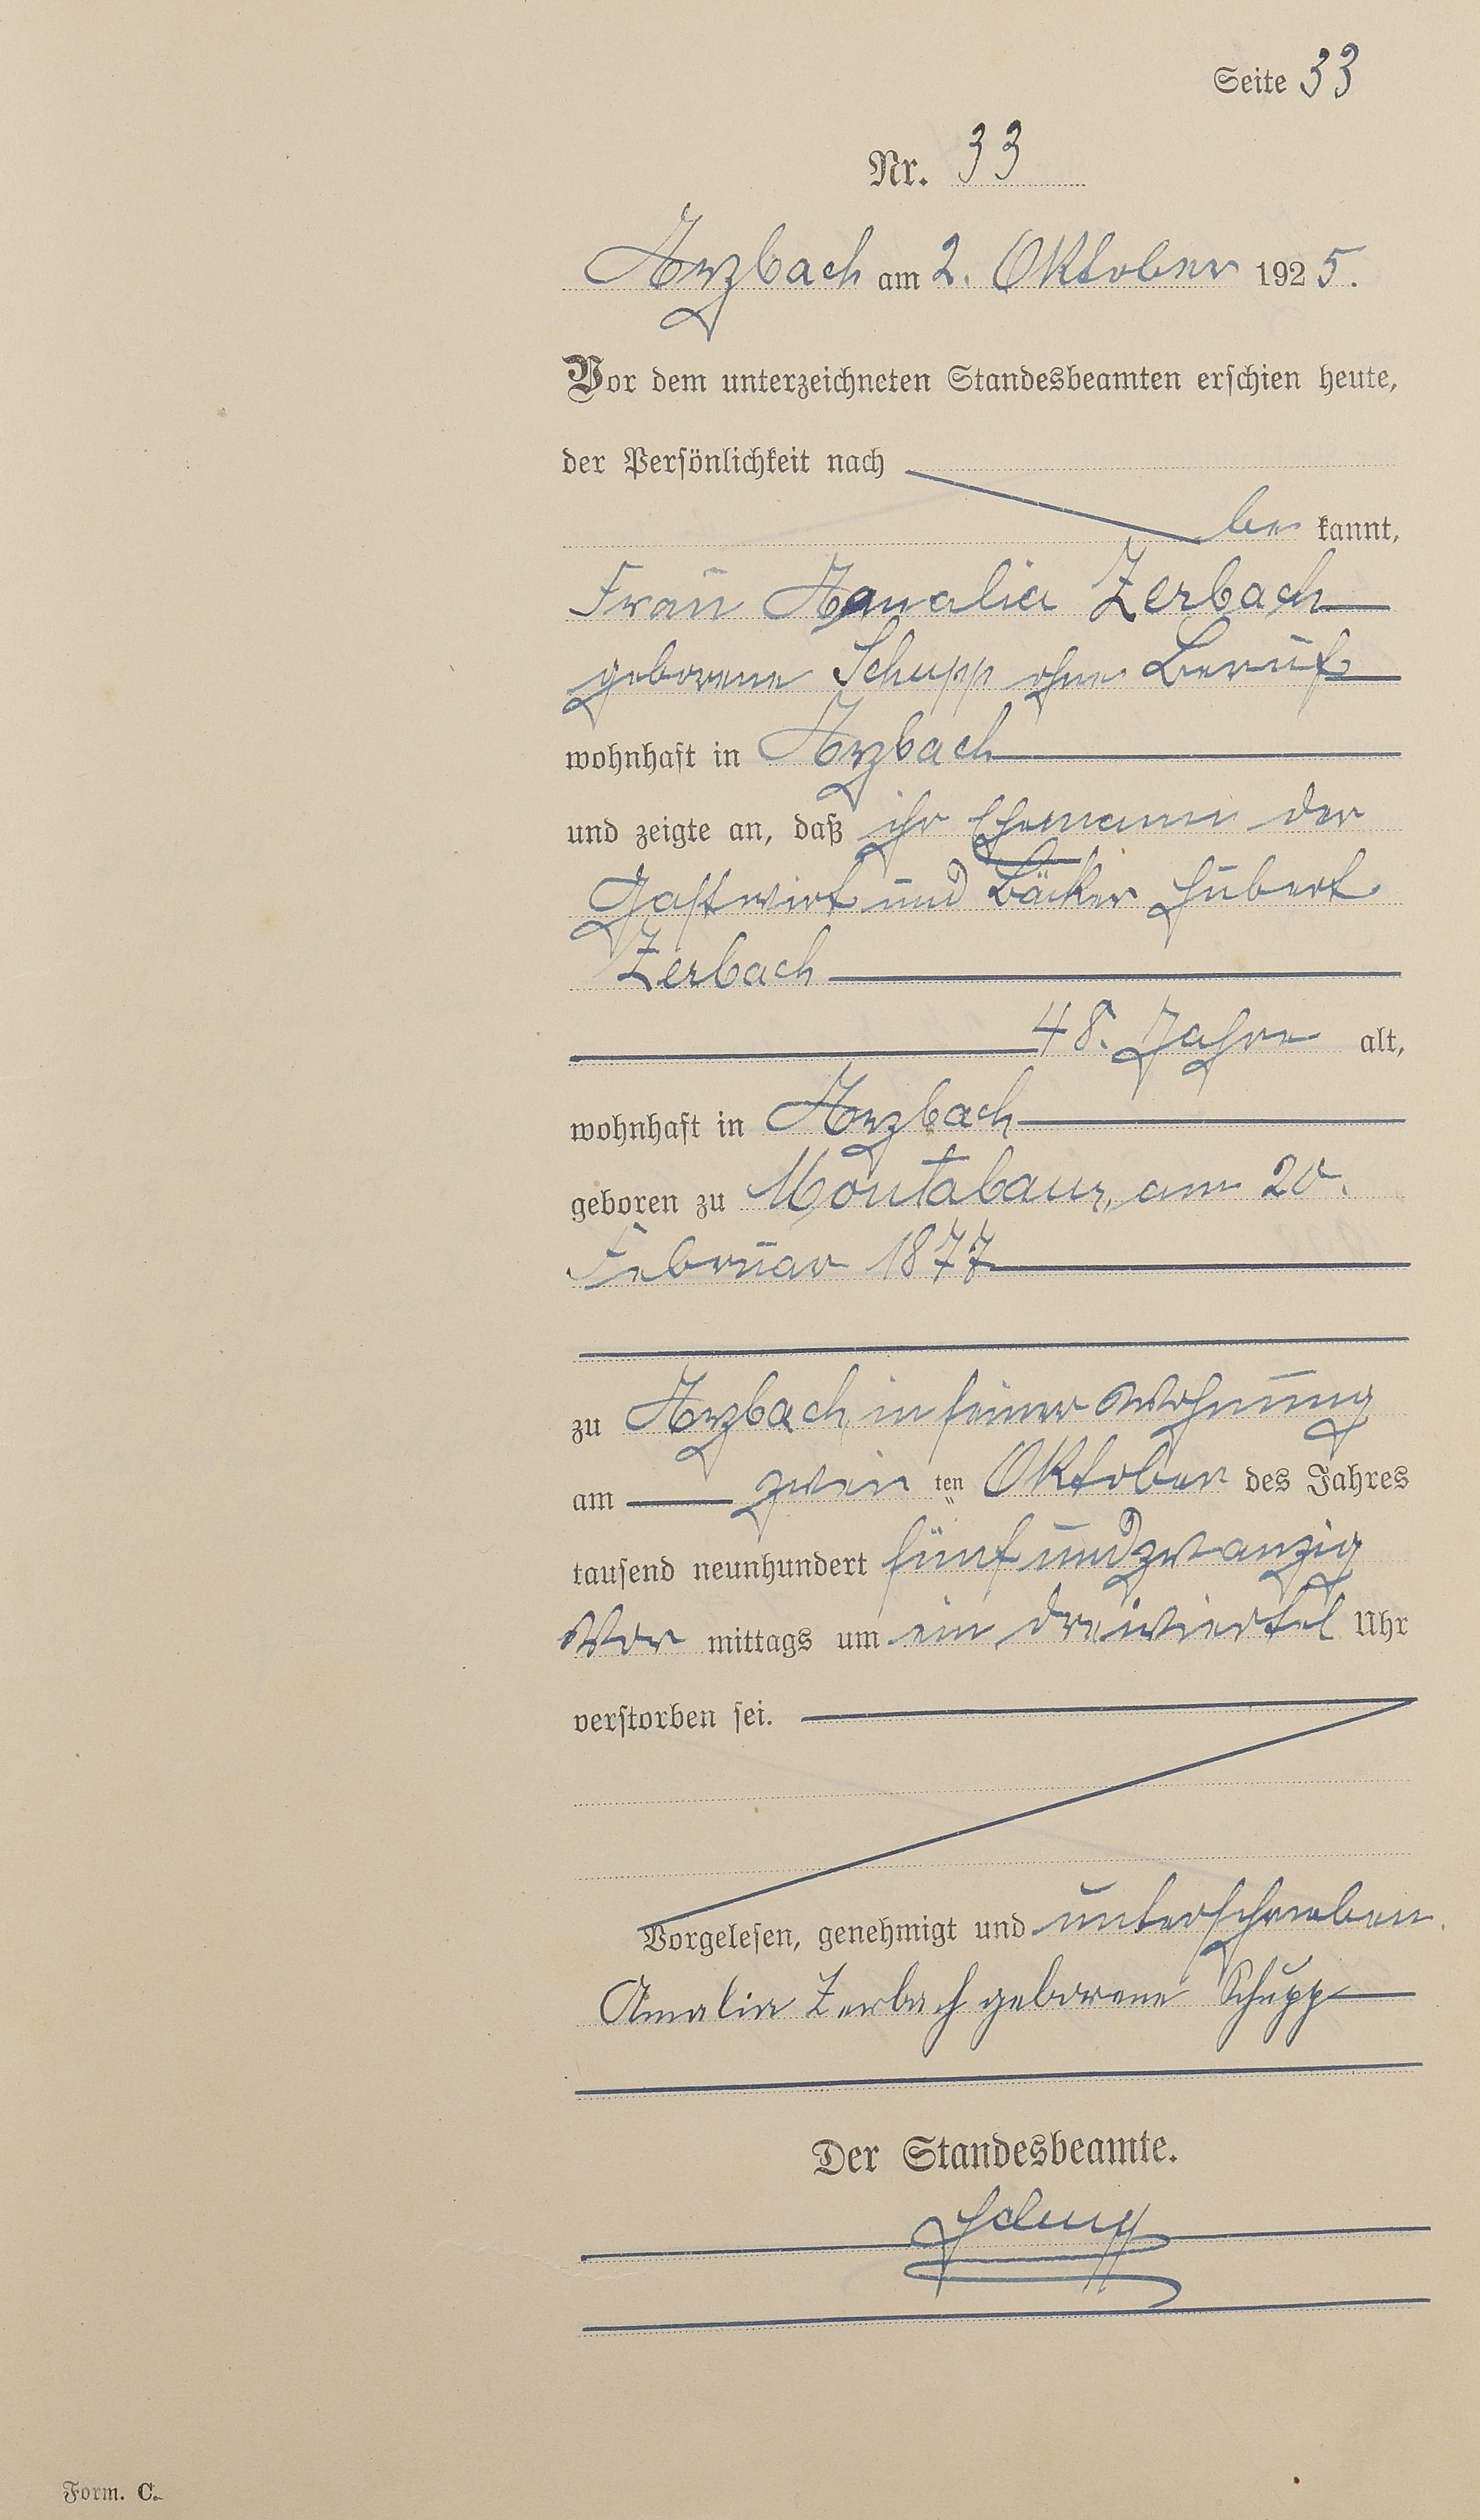 Seite 33
Nr. 33
Arzbach am 2. Oktober 1925.
Vor dem unterzeichneten Standesbeamten erschien heute,
der Persönlichkeit nach
be kannt,
Frau Amalia Zerbach
geborene Schupp ohne Beruf
wohnhaft in Arzbach
und zeigte an, daß ihr Ehemann der
Gastwirt und Bäcker Hubert
Zerbach
48. Jahre alt,
wohnhaft in Arzbach
geboren zu Montabaur, am 20.
Februar 1877
zu Arzbach, in seiner Wohnung
am zwei ten Oktober des Jahres
tausend neunhundert fünf und zwanzig
Vor mittags um ein dreiviertel Uhr
verstorben sei.
Vorgelesen, genehmigt und unterschrieben.
Amalia Zerbach geborene Schupp
Der Standesbeamte.
Form. C.